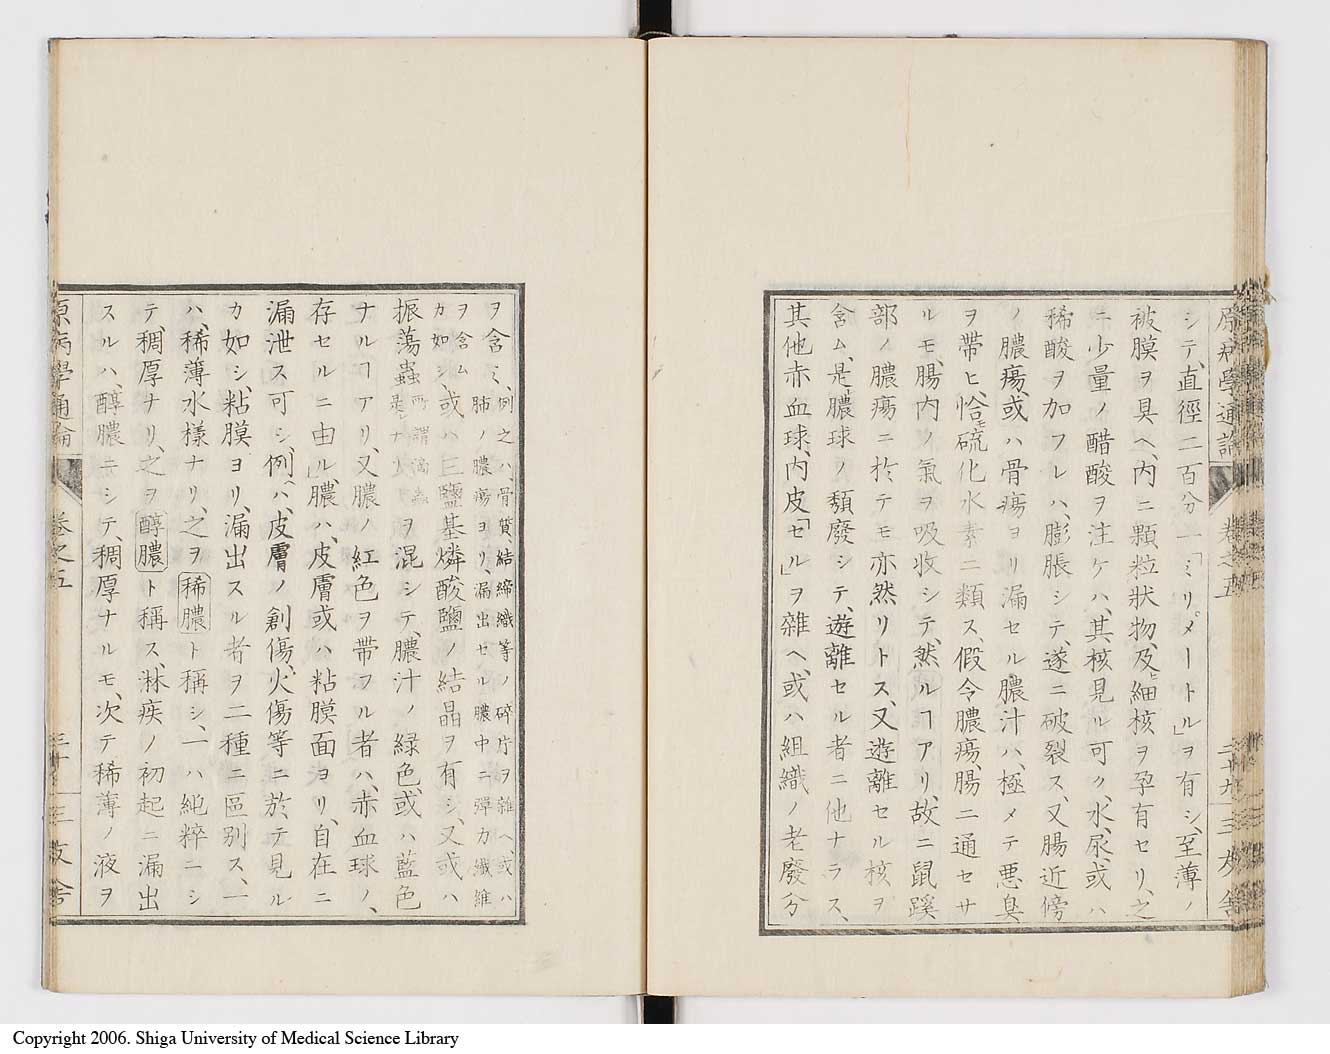 原病學通論 卷之五 二十九 三友舍
シテ、直徑二百分一「ミリメートル」ヲ有シ、至薄ノ
被膜ヲ具ヘ、內ニ顆粒狀物、及ヒ細核ヲ孕有セリ、之
ニ少量ノ醋酸ヲ注ケハ、其核見ル可ク、水、尿、或ハ
稀酸ヲ加フルハ、膨脹シテ、遂ニ破裂ス、又腸近傍
ノ膿瘍、或ハ骨瘍ヨリ漏セル膿汁ハ、極メテ悪臭
ヲ帶ヒ、恰モ硫化水素ニ類ス、假令膿瘍、腸ニ通セサ
ルモ、腸內ノ氣ヲ吸收シテ、然ルヿアリ、故ニ鼠蹊
部ノ膿瘍ニ於テモ亦然リトス、又遊離セル核ヲ
含ム、是膿球ノ頽廢シテ、遊離セル者ニ他ナラス、
其他赤血球、內皮「セル」ヲ雜ヘ、或ハ組織ノ老廢分
ヲ含ミ、例之ハ、骨質結締織等ノ碎片ヲ雜ヘ、或ハ
肺ノ膿瘍ヨリ漏出セル膿中ニ彈力纖維
ヲ含ム
カ如シ、或ハ三鹽基燐酸鹽ノ結晶ヲ有シ、又或ハ
振蕩蟲所謂滴蟲是ナリヲ混シテ、膿汁ノ綠色、或ハ藍色
ナルヿアリ、又膿ノ紅色ヲ帶フル者ハ、赤血球ノ、
存セルニ由ル」膿ハ、皮膚或ハ粘膜面ヨリ、自在ニ
漏泄ス可シ、例ハ、皮膚ノ創傷、火傷等ニ於テ見ル
カ如シ、粘膜ヨリ、漏出スル者ヲ二種ニ區別ス、一
ハ、稀薄水樣ナリ、之ヲ稀膿ト稱シ、一ハ純粹ニシ
テ、稠厚ナリ、之ヲ醇膿ト稱ス、淋疾ノ初起ニ漏出
スルハ、醇膿ニシテ、稠厚ナルモ、次テ稀薄ノ液ヲ
原病學通論 卷之五 三十 三友舍
Copyright 2006. Shiga University of Medical Science Library